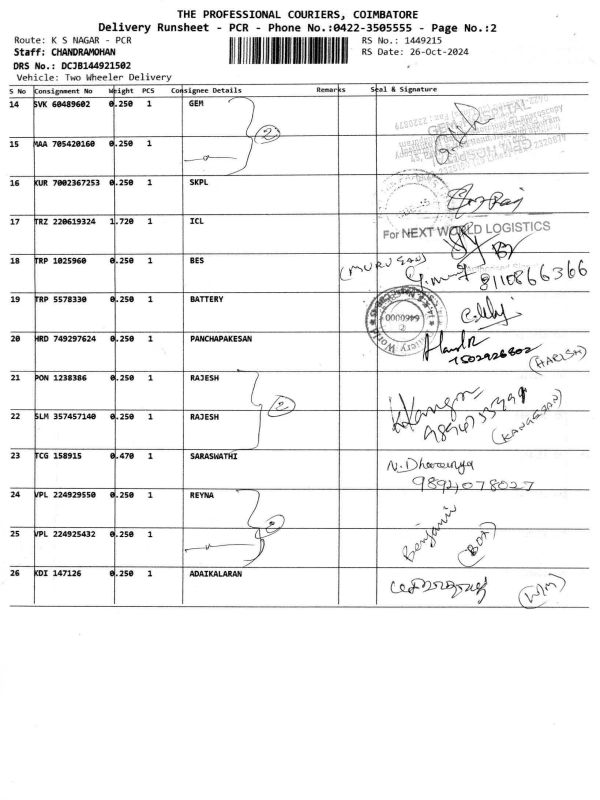 THE PROFESSIONAL COURIERS, COIMBATORE
Delivery Runsheet - PCR - Phone No.:0422-3505555 - Page No.:2
Route: K S NAGAR - PCR RS No.: 1449215
Staff: CHANDRAMOHAN RS Date: 26-Oct-2024
DRS No.: DCJB144921502
Vehicle: Two Wheeler Delivery
S No Consignment No Weight PCS Consignee Details Remarks Seal & Signature
14 SVK 60489602 0.250 1 GEM
2
GEM HOSPITAL
15 MAA 705420160 0.250 1
16 KUR 7002367253 0.250 1 SKPL
17 TRZ 220619324 1.720 1 ICL
For NEXT WORLD LOGISTICS
18 TRP 1025960 0.250 1 BES (MURUGAN)
8110866366
19 TRP 5578330 0.250 1 BATTERY
Battery World
0000949
20 HRD 749297624 0.250 1 PANCHAPAKESAN
7502926802 (HARISH)
21 PON 1238386 0.250 1 RAJESH
2
22 SLM 357457140 0.250 1 RAJESH
(KANGESAN)
23 TCG 158915 0.470 1 SARASWATHI N. Dharanya
9894078027
24 VPL 224929550 0.250 1 REYNA
2
25 VPL 224925432 0.250 1 Benjamin (BOX)
26 KDI 147126 0.250 1 ADAIKALARAN (W/M)